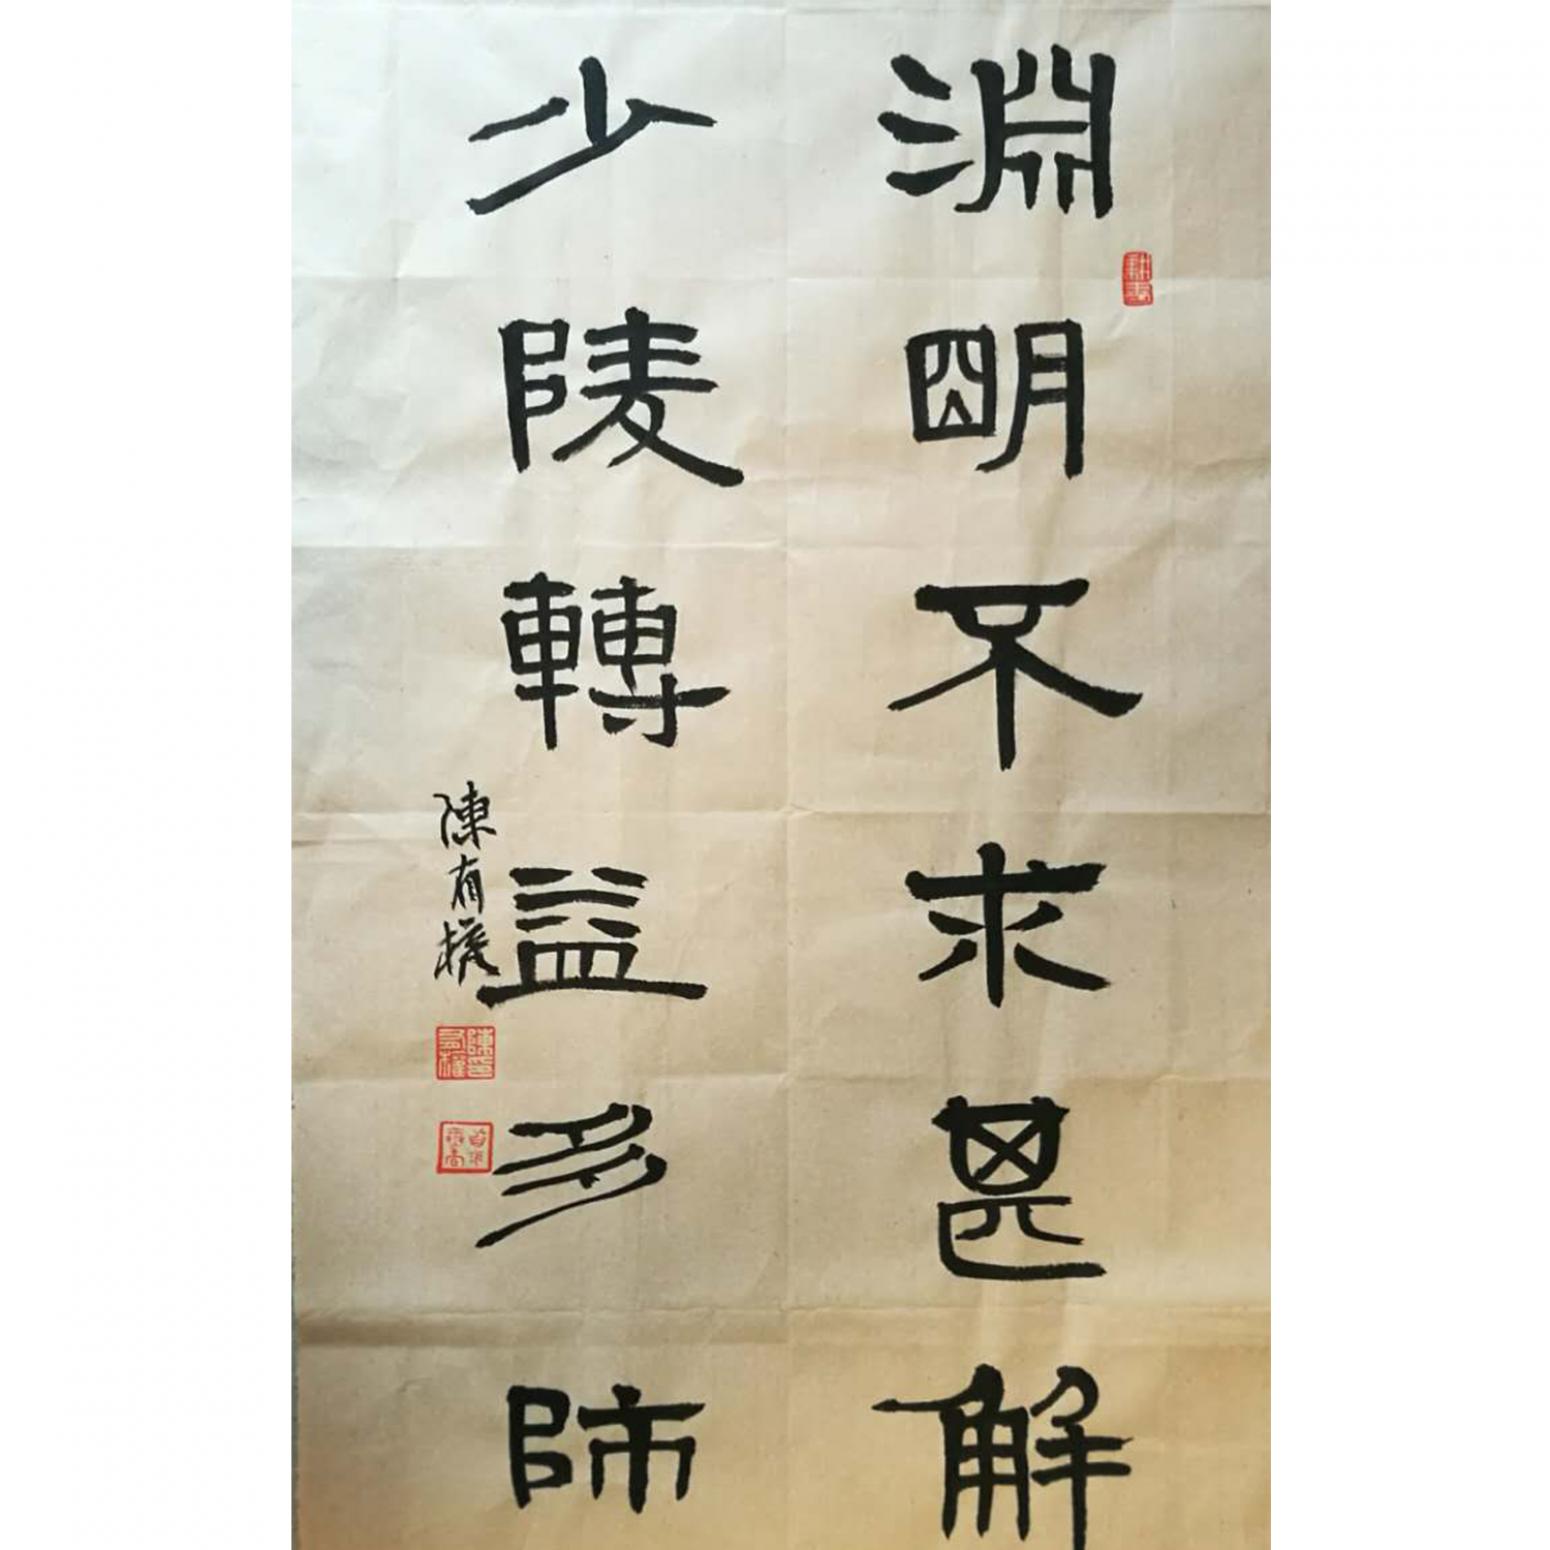 淵明不求甚解
少陵轉益多師
陳有權